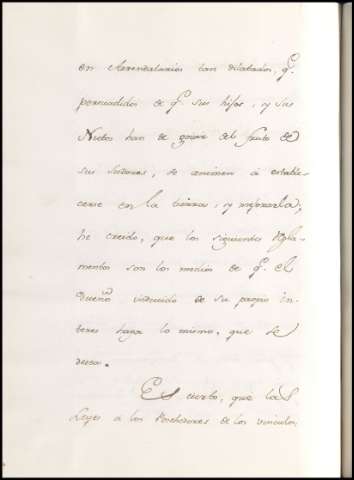 en Arrendatarios tan dilatados, q.e
persuadidos de q.e sus hijos, y sus
Nietos han de gozar del fruto de
sus sudores, se animen á estable-
cerse en la tierra, y mejorarla,
he creido, que los siguientes Regla-
mentos son los medios de q.e el
Dueño inducido de su propio in-
teres haga lo mismo, que se
desea.
Es cierto, que las
Leyes á los Poseedores de los vinculos,